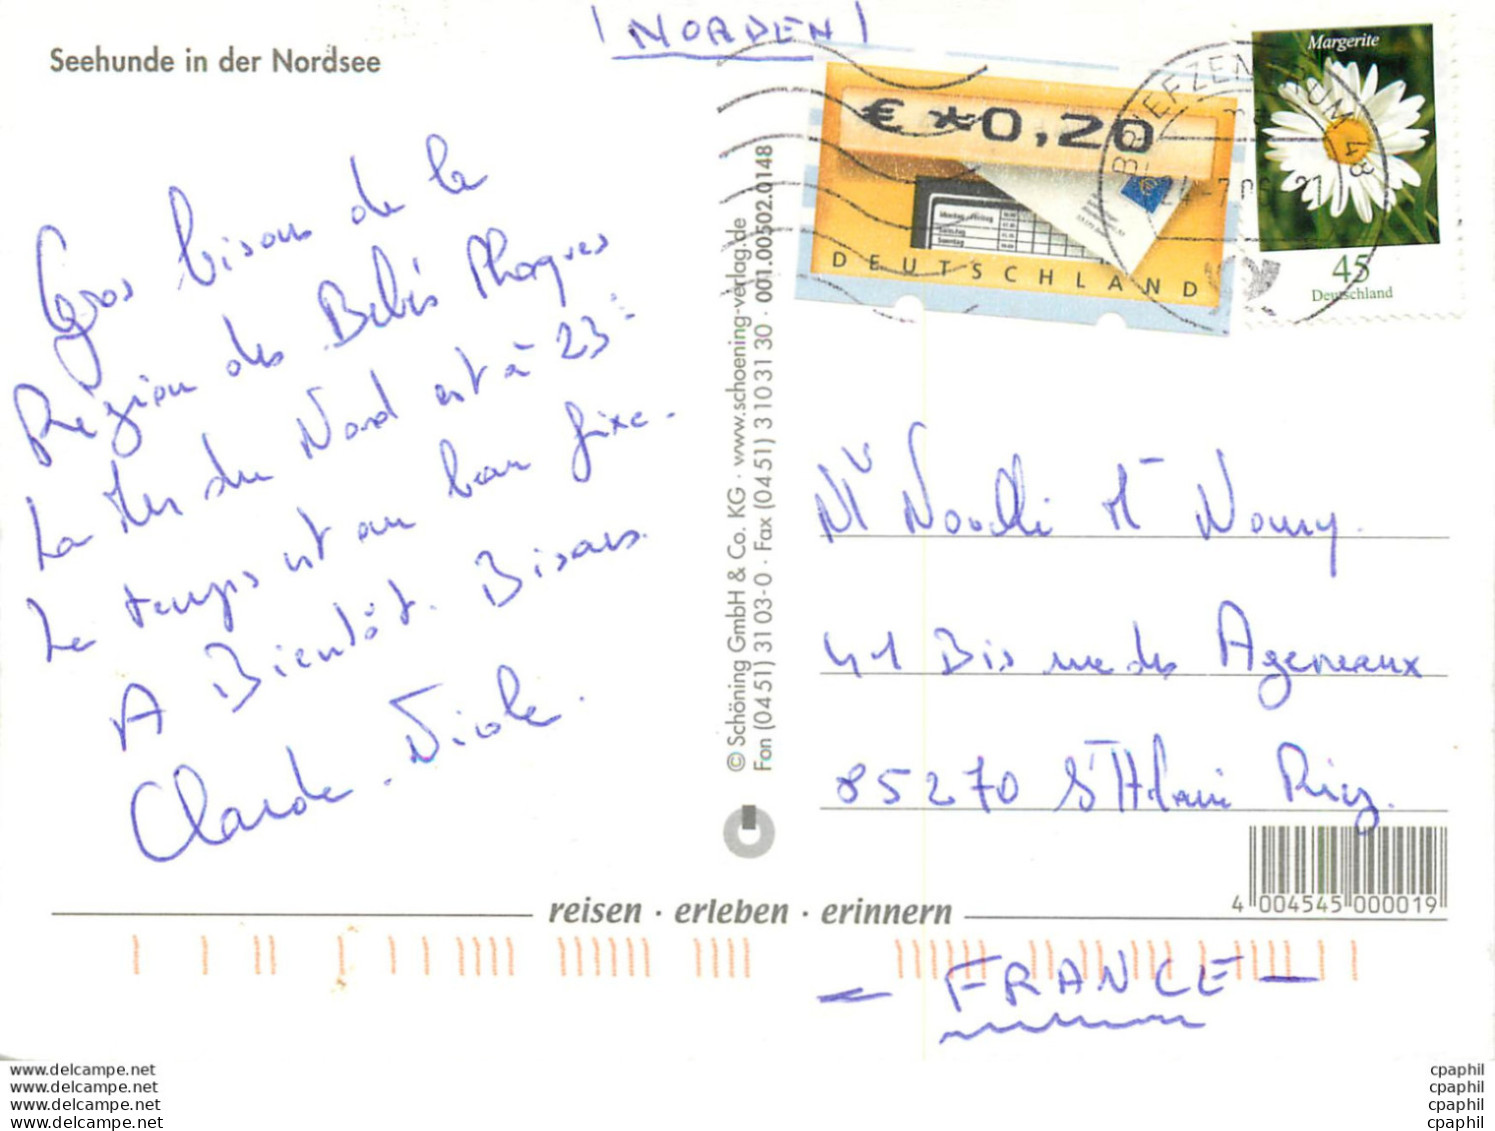 Seehunde in der Nordsee
( NORDEN )
Gros bisous de la
Région des Bébés Phoques
La Mer du Nord est à 23°
Le temps est au beau fixe.
A Bientôt. Bisous.
Claude. Nicole.
© Schöning GmbH & Co. KG · www.schoening-verlag.de
Fon (04 51) 3 10 3-0 · Fax (04 51) 3 10 31 30 · 001.00502.0148
€ *0,20
DEUTSCHLAND
Margerite
45
Deutschland
BRIEFZENTRUM 48
Mr
Mme
41 Bis rue des
85270 St Hilaire Riez.
4 004545 000019
reisen · erleben · erinnern
- FRANCE -
www.delcampe.net
www.delcampe.net
www.delcampe.net
www.delcampe.net
cpaphil
cpaphil
cpaphil
cpaphil